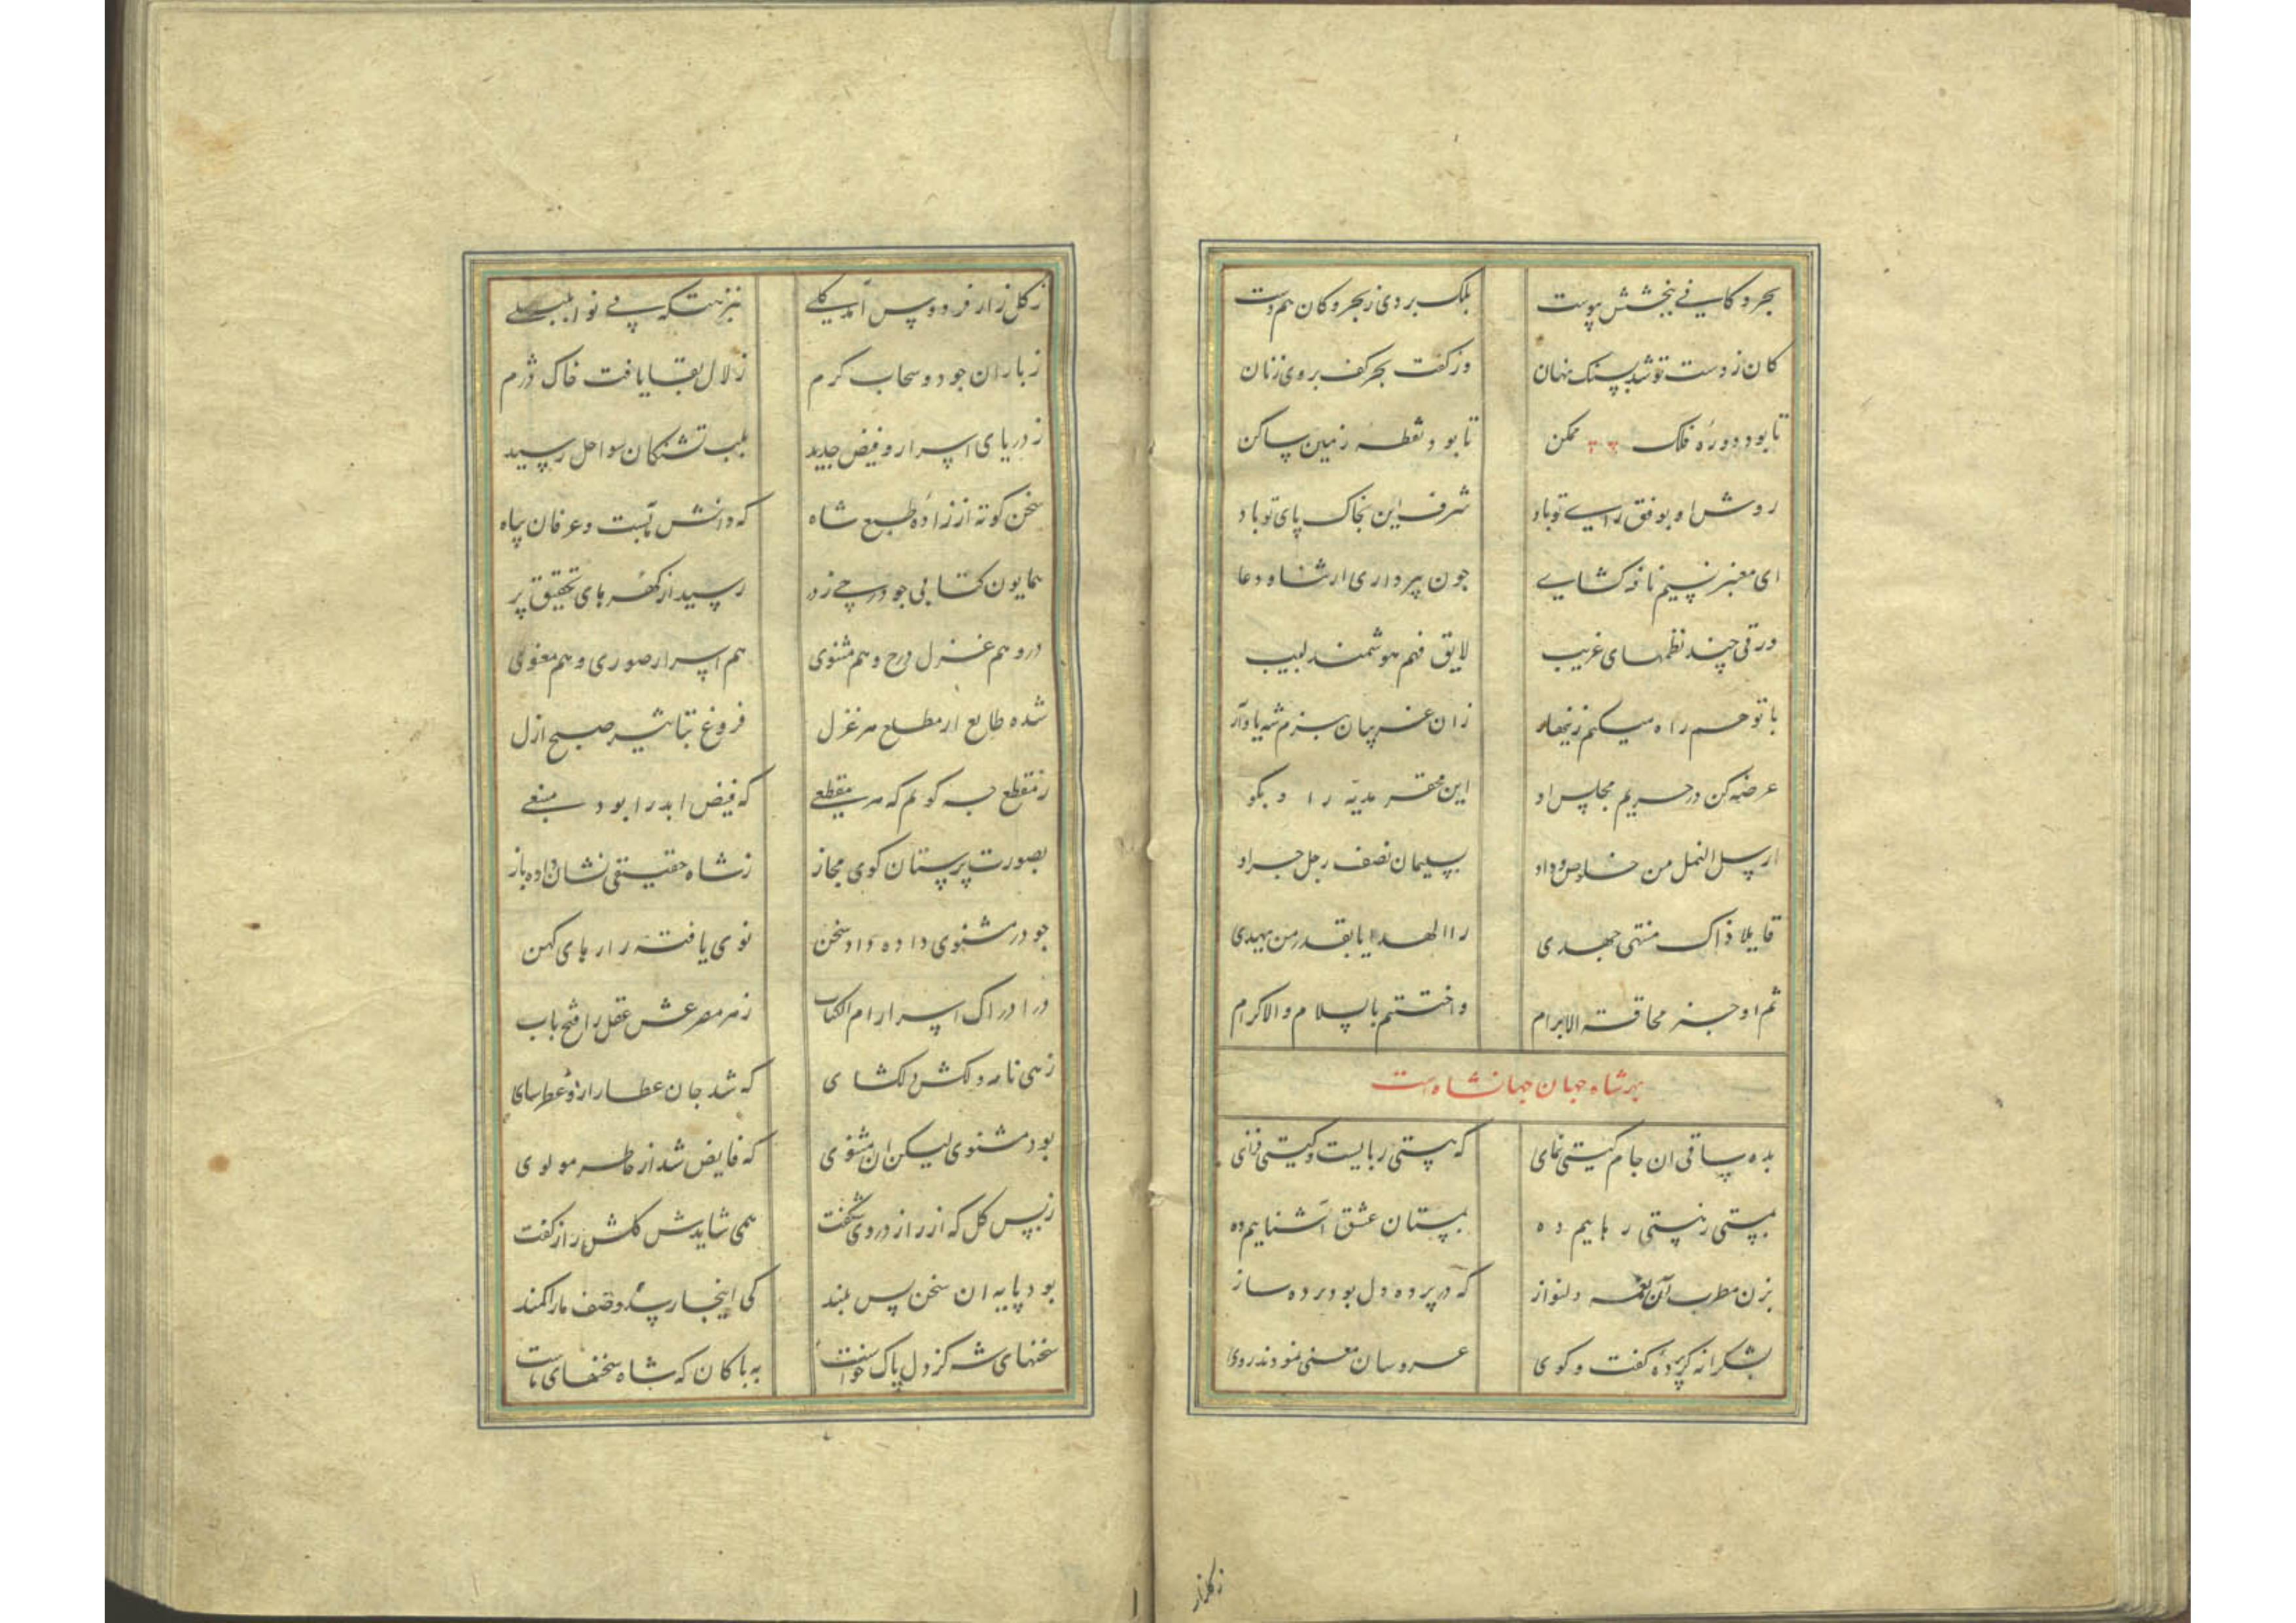 بحر و کانی ببخشش پیوست بلک بردی ز بحر و کان هم دست
کان ز دست تو شد بسنک نهان وز کفت بحر کف بروی زنان
تا بود دوره فلک ممکن تا بود نقطه زمین ساکن
روش او بوفق رای تو باد شرف این بخاک پای تو باد
ای معنبر نسیم نافه کشای چون بپردازی از ثناه و دعا
ورقی چند نظمهای غریب لایق فهم هوشمند لبیب
با تو همراه میکنم زنهار زان غریبان ببزم شه یاد آر
عرضه کن در حریم مجلس او این محقر هدیه را و بکو
ارسل النمل من خلوص وداد بسلیمان نصف رجل جراد
قایلا ذاک منتهی جهدی الهدایا بقدر من یهدی
ثم اوجز مخافة الابرام واختتم بالسلام والاکرام
بهر شاه جهان جهانشاه است
بده ساقی ان جام کیتی نمای که هستی ربایست و کیتی فزای
بمستی ز هستی رهاییم ده بمستان عشق آشناییم ده
بزن مطرب آن نغمه دلنواز که در پرده دل بود پرده ساز
بشکرانه کز پرده کفت و کوی عروسان معنی نمودند روی
زکلزار
ز کلزار فردوس آمد کلی بنزهتکه بی نوا بلبلی
ز باران جود و سحاب کرم زلال بقا یافت خاک دژم
ز دریای اسرار و فیض جدید بلب تشنکان سواحل رسید
سخن کوته از زاده طبع شاه که دانش مآبست و عرفان پناه
همایون کتابی جو درجی ز در رسید از کهرهای تحقیق پر
درو هم غزل درج و هم مثنوی هم اسرار صوری و هم معنوی
شده طالع از مطلع هر غزل فروغ تباشیر صبح ازل
ز مقطع چه کویم که هر مقطعی که فیض ابد را بود منبعی
بصورت پرستان کوی مجاز ز شاه حقیقی نشان داده باز
جو در مثنوی داده داد سخن نوی یافته رازهای کهن
در ادراک اسرار ام الکتاب ز هر مصرعش عقل را فتح باب
زهی نامه دلکش دلکشای که شد جان عطار ازو عطرسای
بود مثنوی لیکن ان مثنوی که فایض شد از خاطر مولوی
ز بس کل که از راز در وی شکفت همی شایدش کلشن راز کفت
بود پایه ان سخن بس بلند کی اینجا رسد وصف ما را کمند
سخنهای شه کز دل پاک خواست به پاکان که شاه سخنهای ماست